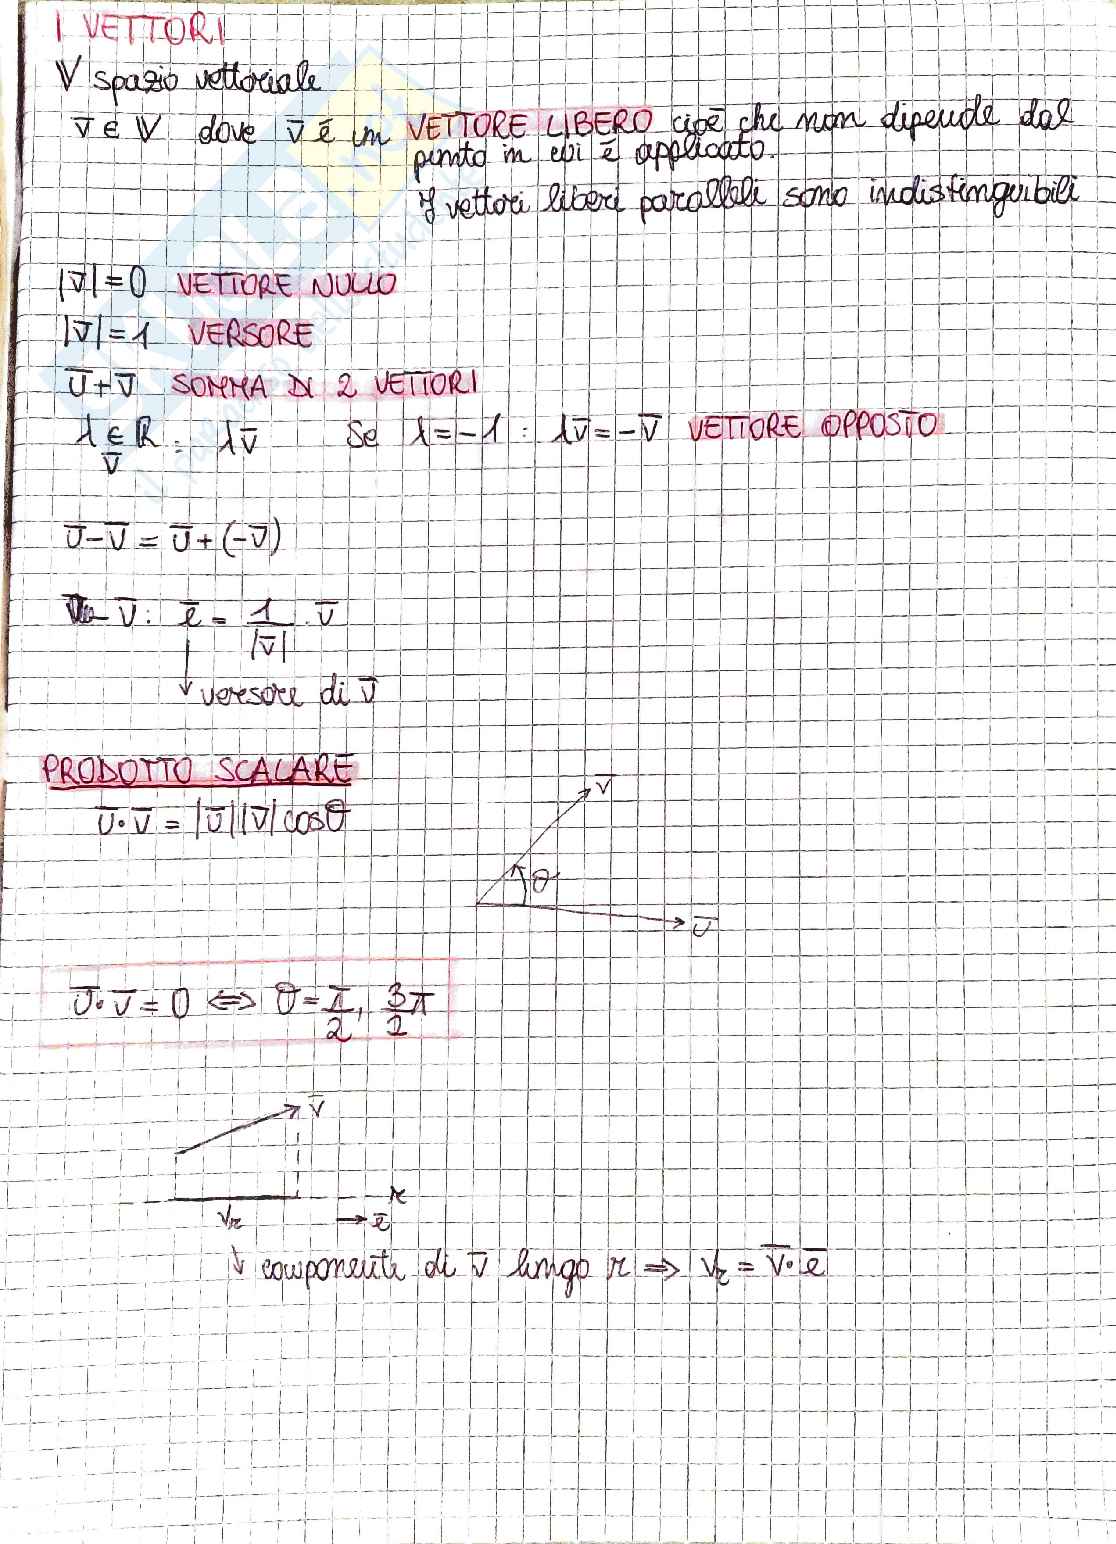 I VETTORI
V spazio vettoriale
v̅ ∈ V dove v̅ è un VETTORE LIBERO cioè che non dipende dal
punto in cui è applicato.
I vettori liberi paralleli sono indistinguibili
|v̅| = 0 VETTORE NULLO
|v̅| = 1 VERSORE
u̅ + v̅ SOMMA DI 2 VETTORI
λ ∈ ℝ : λv̅ Se λ = -1 : λv̅ = -v̅ VETTORE OPPOSTO
v̅
u̅ - v̅ = u̅ + (-v̅)
v̅ : e̅ = 1/|v̅| · v̅
versore di v̅
PRODOTTO SCALARE
u̅ · v̅ = |u̅| |v̅| cosθ
v̅
θ
u̅
u̅ · v̅ = 0 ⇔ θ = π/2, 3/2 π
v̅
r
vr
e̅
↓ componente di v̅ lungo r ⇒ vr = v̅ · e̅